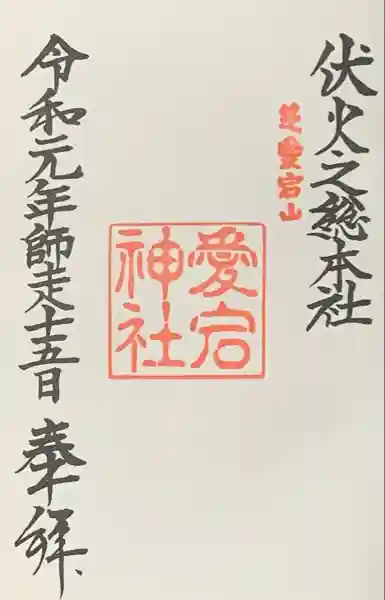 伏火之總本社
芝愛宕山
愛宕
神社
令和元年師走十五日 奉拝